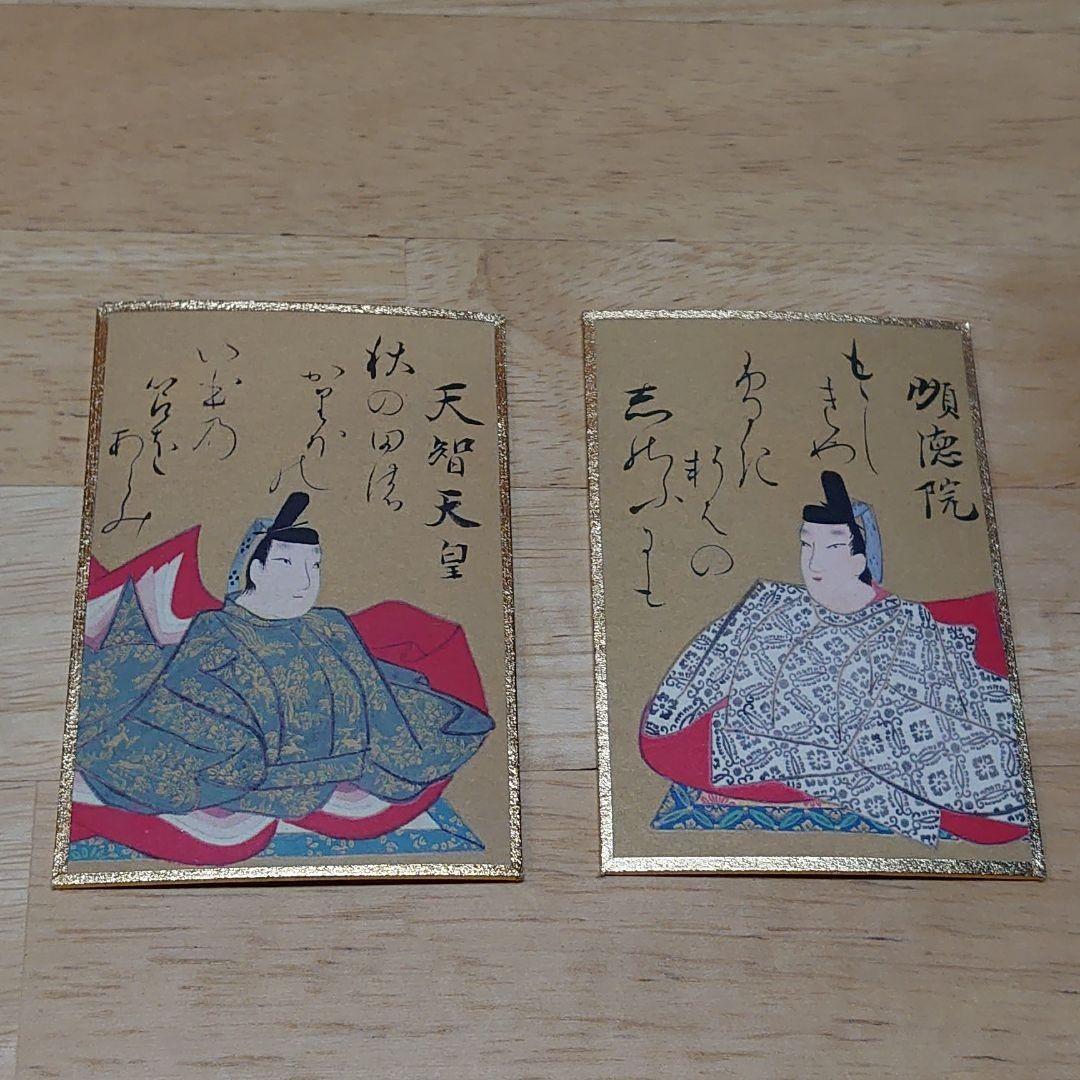 天智天皇
秋の田の
かりほの
いほ乃
苫を
あらみ
順徳院
もゝし
きや
ふるき
軒はの
志のふにも